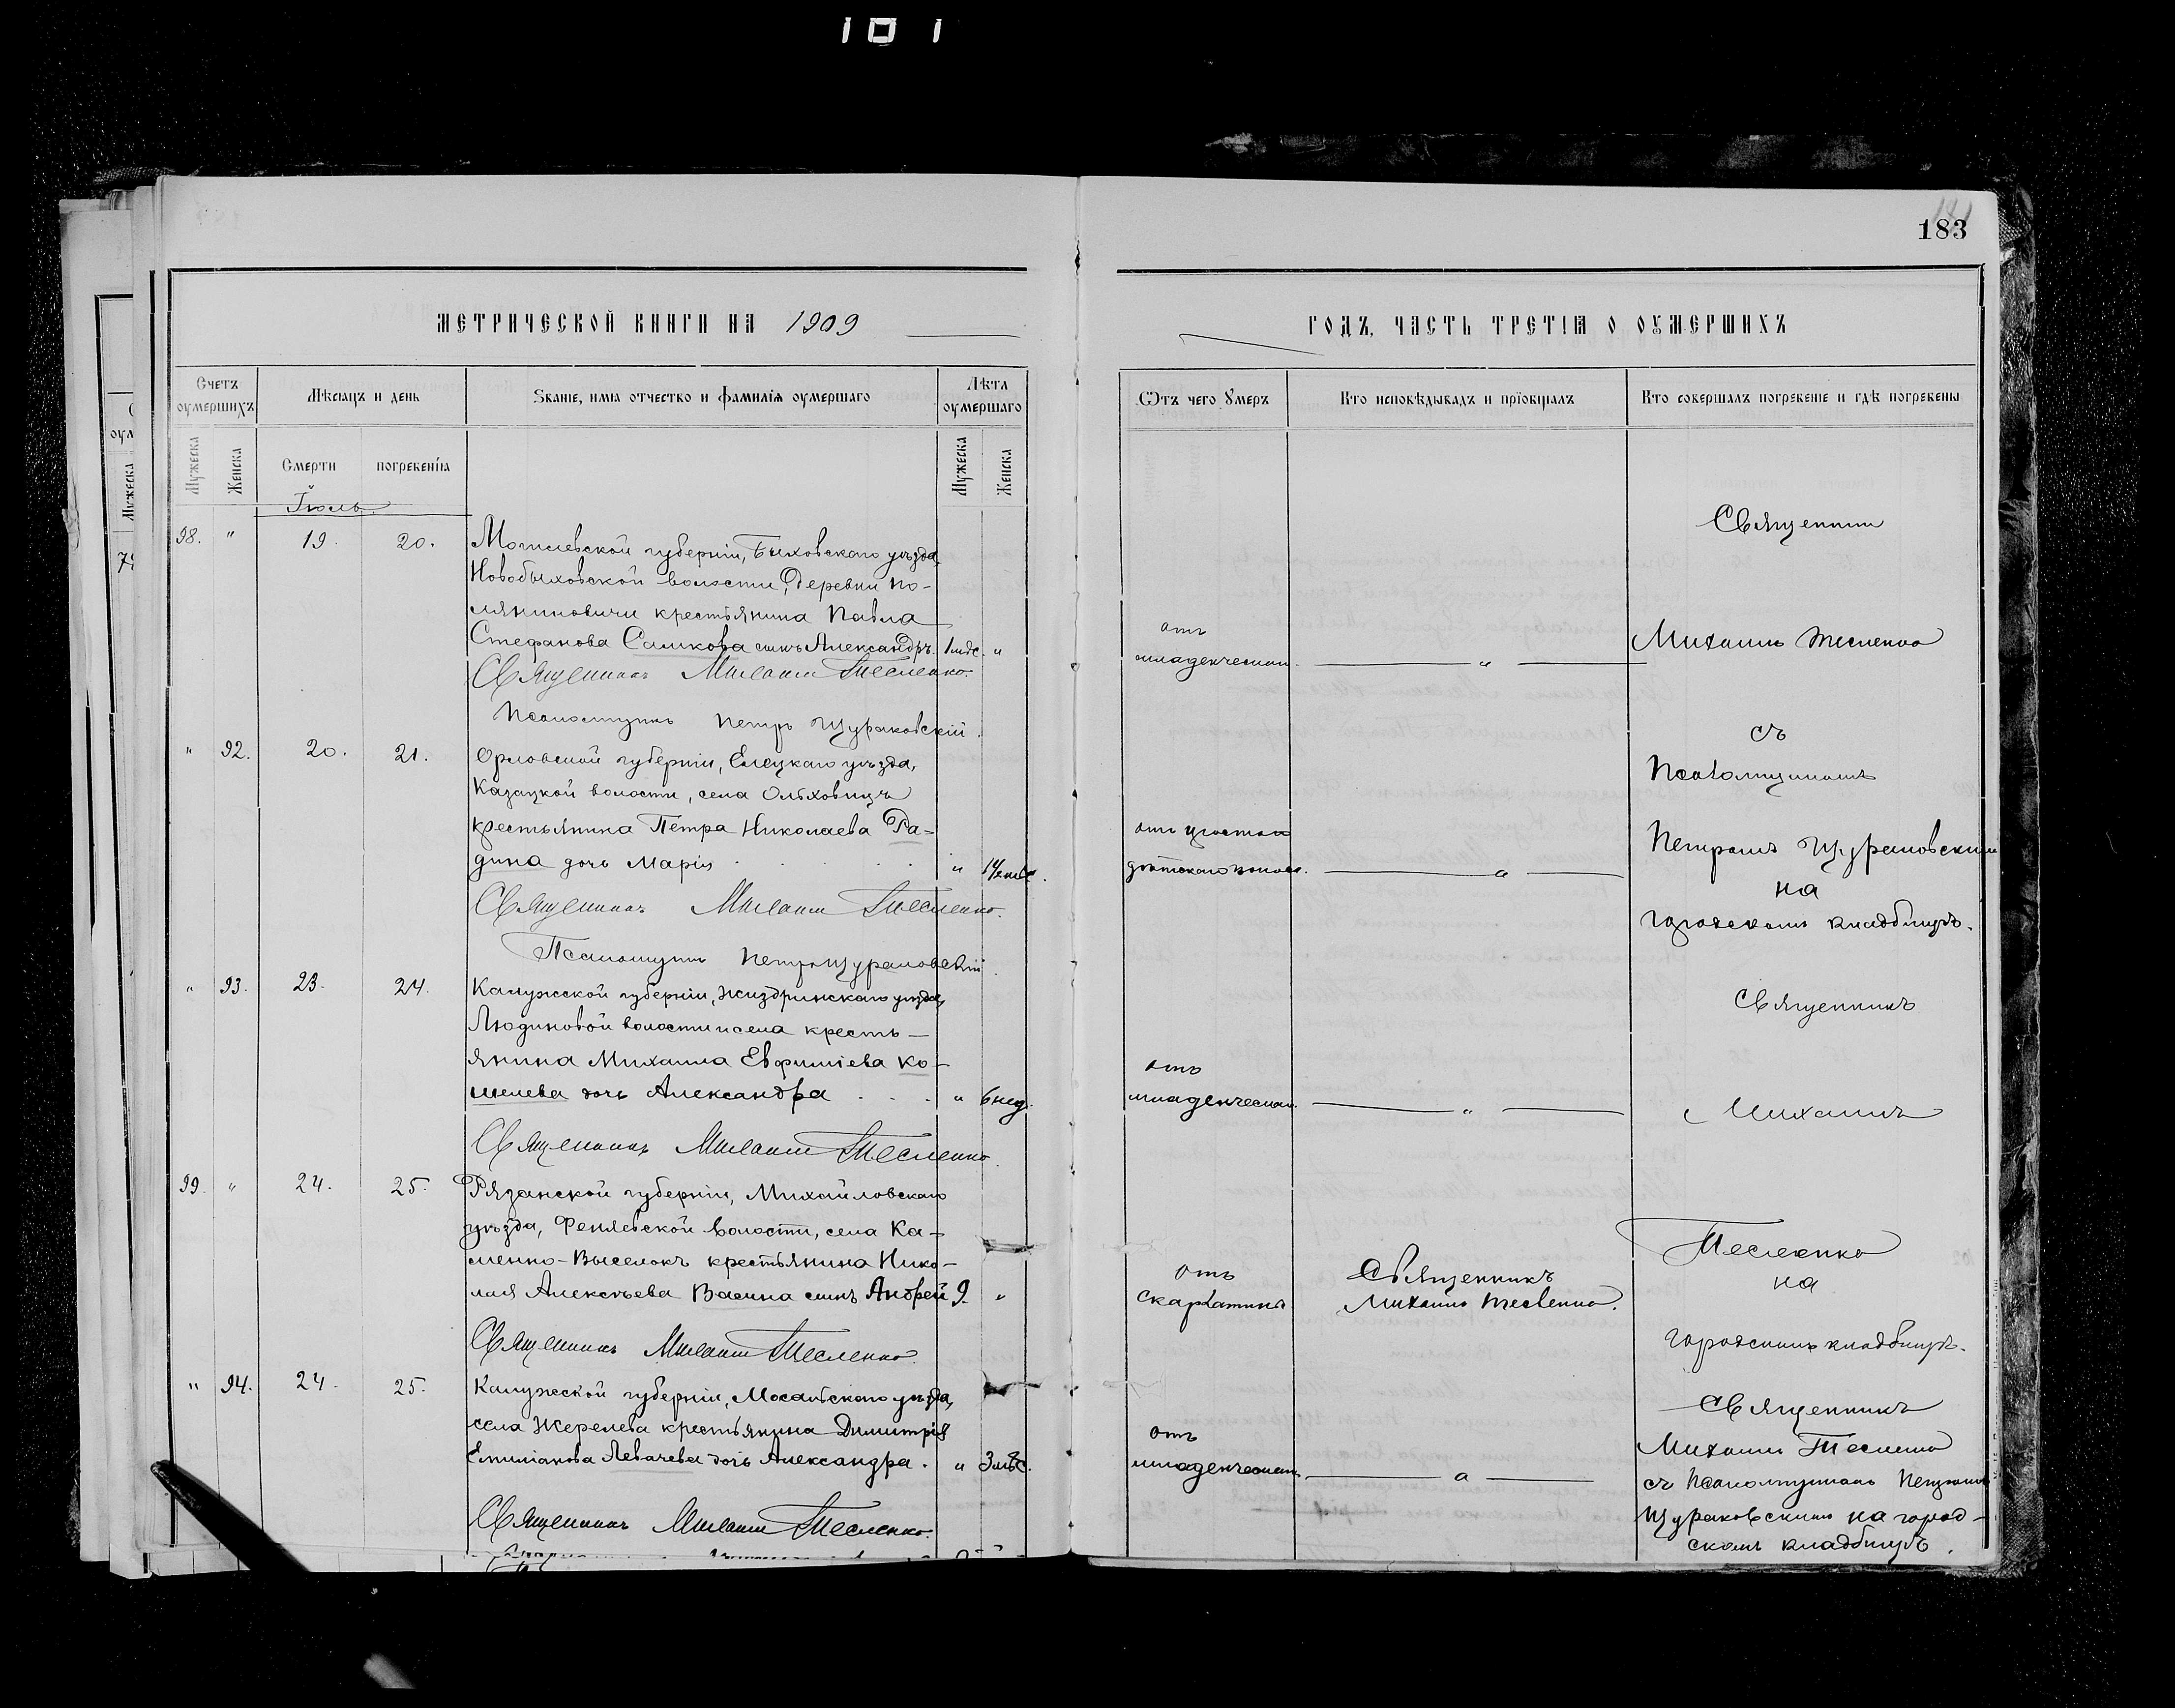 101
183
МЕТРИЧЕСКОЙ КНИГИ НА 1909
ГОДЪ, ЧАСТЬ ТРЕТІѦ О ОУМЕРШИХЪ
Счетъ оумершихъ
Мѣсяцъ и день
Званіе, имя отчество и фамилія оумершаго
Лѣта оумершаго
Мужеска
Женска
Смерти
погребенія
Мужеска
Женска
Ѿтъ чего Умеръ
Кто исповѣдывалъ и пріобщалъ
Кто совершалъ погребеніе и гдѣ погребены
Іюль.
98. " 19. 20.
Могилевской губерніи, Быховскаго уѣзда,
Новобыховской волости, деревни По-
ляниновичи крестьянина Павла
Стефанова Самкова сынъ Александръ. 1 мѣс. "
Священникъ Михаилъ Тесленко.
Псаломщикъ Петръ Щураковскій.
отъ
младенческой.
Священникъ
Михаилъ Тесленко
съ
Псаломщикомъ
Петромъ Щураковскимъ
на
городскомъ кладбищѣ.
" 92. 20. 21.
Орловской губерніи, Елецкаго уѣзда,
Казацкой волости, села Ольховицъ
крестьянина Петра Николаева Ра-
дина дочь Марія . . . . "
Священникъ Михаилъ Тесленко.
Псаломщикъ Петръ Щураковскій.
дѣтскаго поноса.
" 93. 23. 24.
Калужской губерніи, Жиздринскаго уѣзда,
Людиновой волости и села кресть-
янина Михаила Евфиміева Ко-
шелева дочь Александра . . . " 6 нед.
Священникъ Михаилъ Тесленко.
отъ
младенческой.
Священникъ
Михаилъ
Тесленко
на
городскомъ кладбищѣ.
99. " 24. 25.
Рязанской губерніи, Михайловскаго
уѣзда, Феняевской волости, села Ка-
менно-Выселокъ крестьянина Нико-
лая Алексѣева Васина сынъ Андрей 9. "
Священникъ Михаилъ Тесленко.
отъ
скарлатины.
Священникъ
Михаилъ Тесленко.
" 94. 24. 25.
Калужской губерніи, Мосальскаго уѣзда,
села Жерелева крестьянина Димитрія
Емиліанова Левачева дочь Александра. " 3 мѣс.
Священникъ Михаилъ Тесленко.
отъ
младенческой.
Священникъ
Михаилъ Тесленко
съ Псаломщикомъ Петромъ
Щураковскимъ на город-
скомъ кладбищѣ.